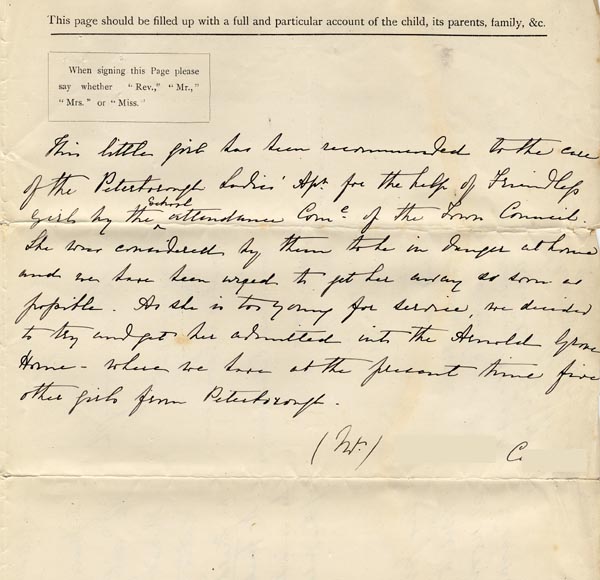 This page should be filled up with a full and particular account of the child, its parents, family, &c.
When signing this Page please
say whether "Rev.," "Mr.,"
"Mrs." or "Miss."
This little girl has been recommended to the care
of the Peterborough Ladies' Apn. for the help of Friendless
School
girls by the ^ attendance Come. of the Town Council.
She was considered by them to be in danger at home
and we have been urged to get her away so soon as
possible. As she is too young for service, we decided
to try and get her admitted into the Arnold Grove
Home - where we have at the present time five
other girls from Peterborough.
C.